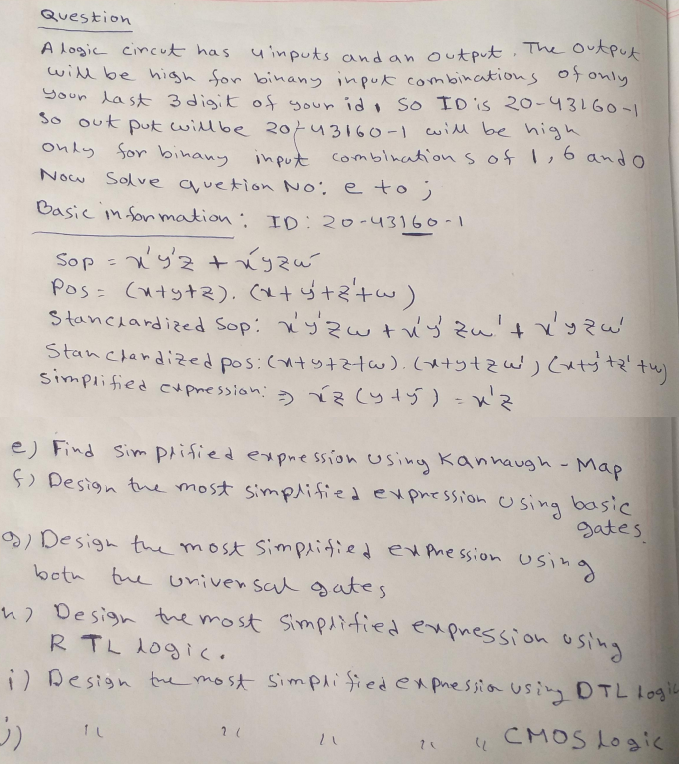 Question
A logic circut has 4 inputs and an output. The output
will be high for binany input combinations of only
your last 3 digit of your id, So ID is 20-43160-1
So out put will be 20-43160-1 will be high
only for binany input combinations of 1, 6 and 0
Now Solve quetion No: e to j
Basic information: ID: 20-43160-1
Sop = x'y'z + x'yzw'
Pos = (x+y+z). (x+y'+z'+w)
Standardized Sop: x'y'zw + x'y'zw' + x'yzw'
Standardized pos: (x+y+z+w). (x+y+zw') (x+y'+z'+w)
Simplified expression: ⇒ x'z (y+y') = x'z
e) Find simplified expression using Kannaugh-Map
f) Design the most simplified expression using basic
gates.
g) Design the most simplified expression using
both the universal gates
h) Design the most simplified expression using
RTL logic.
i) Design the most simplified expression using DTL logic
j) " " " " " CMOS Logic